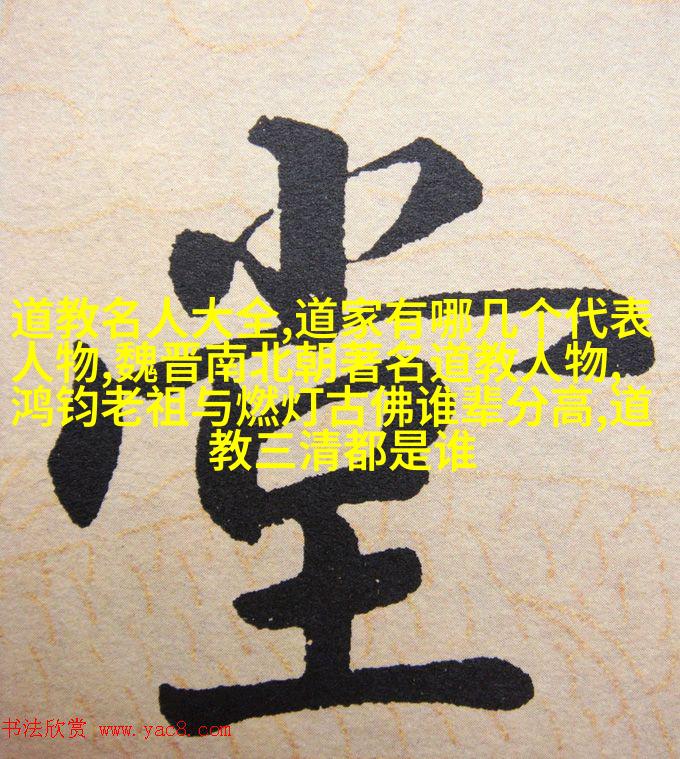 堂
道教名人大全,道家有哪几个代表
人物,魏晋南北朝著名道教人物,
鸿钧老祖与燃灯古佛谁辈分高,道
教三清都是谁
书法欣赏 www.yac8.com